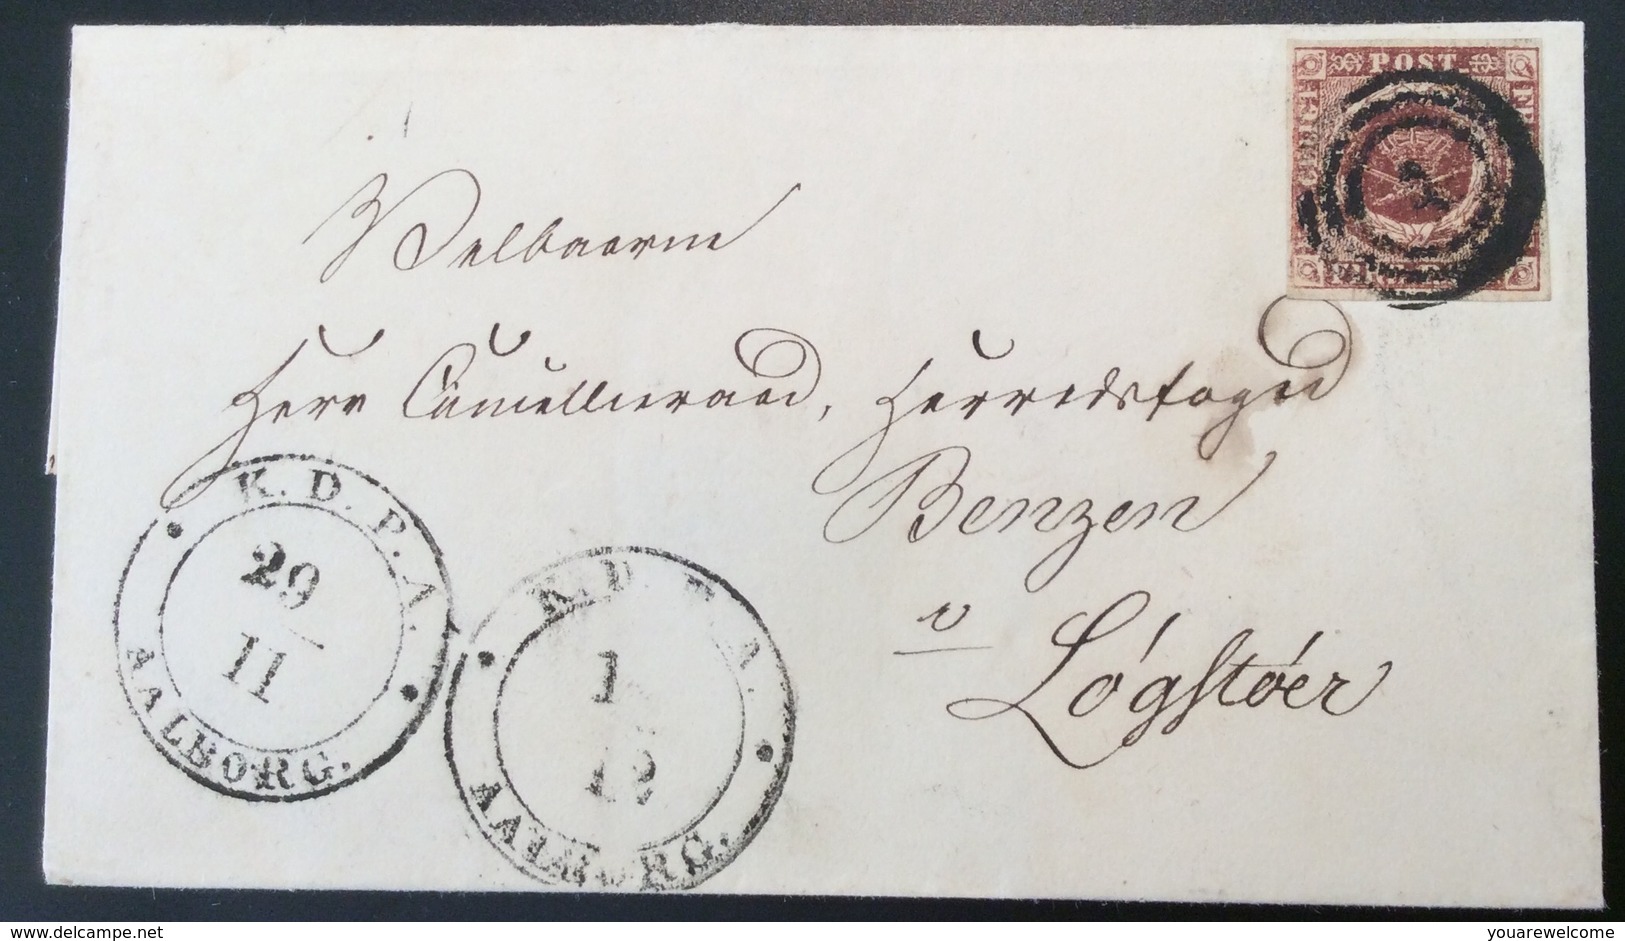 POST
Velbaarne
Herr Cancelliraad, Herredsfoged
Benzen
v Lógstóer
K. D. P. A.
29
11
AALBORG.
K. D. P. A.
1
12
AALBORG.
delcampe.net
youarewelcome